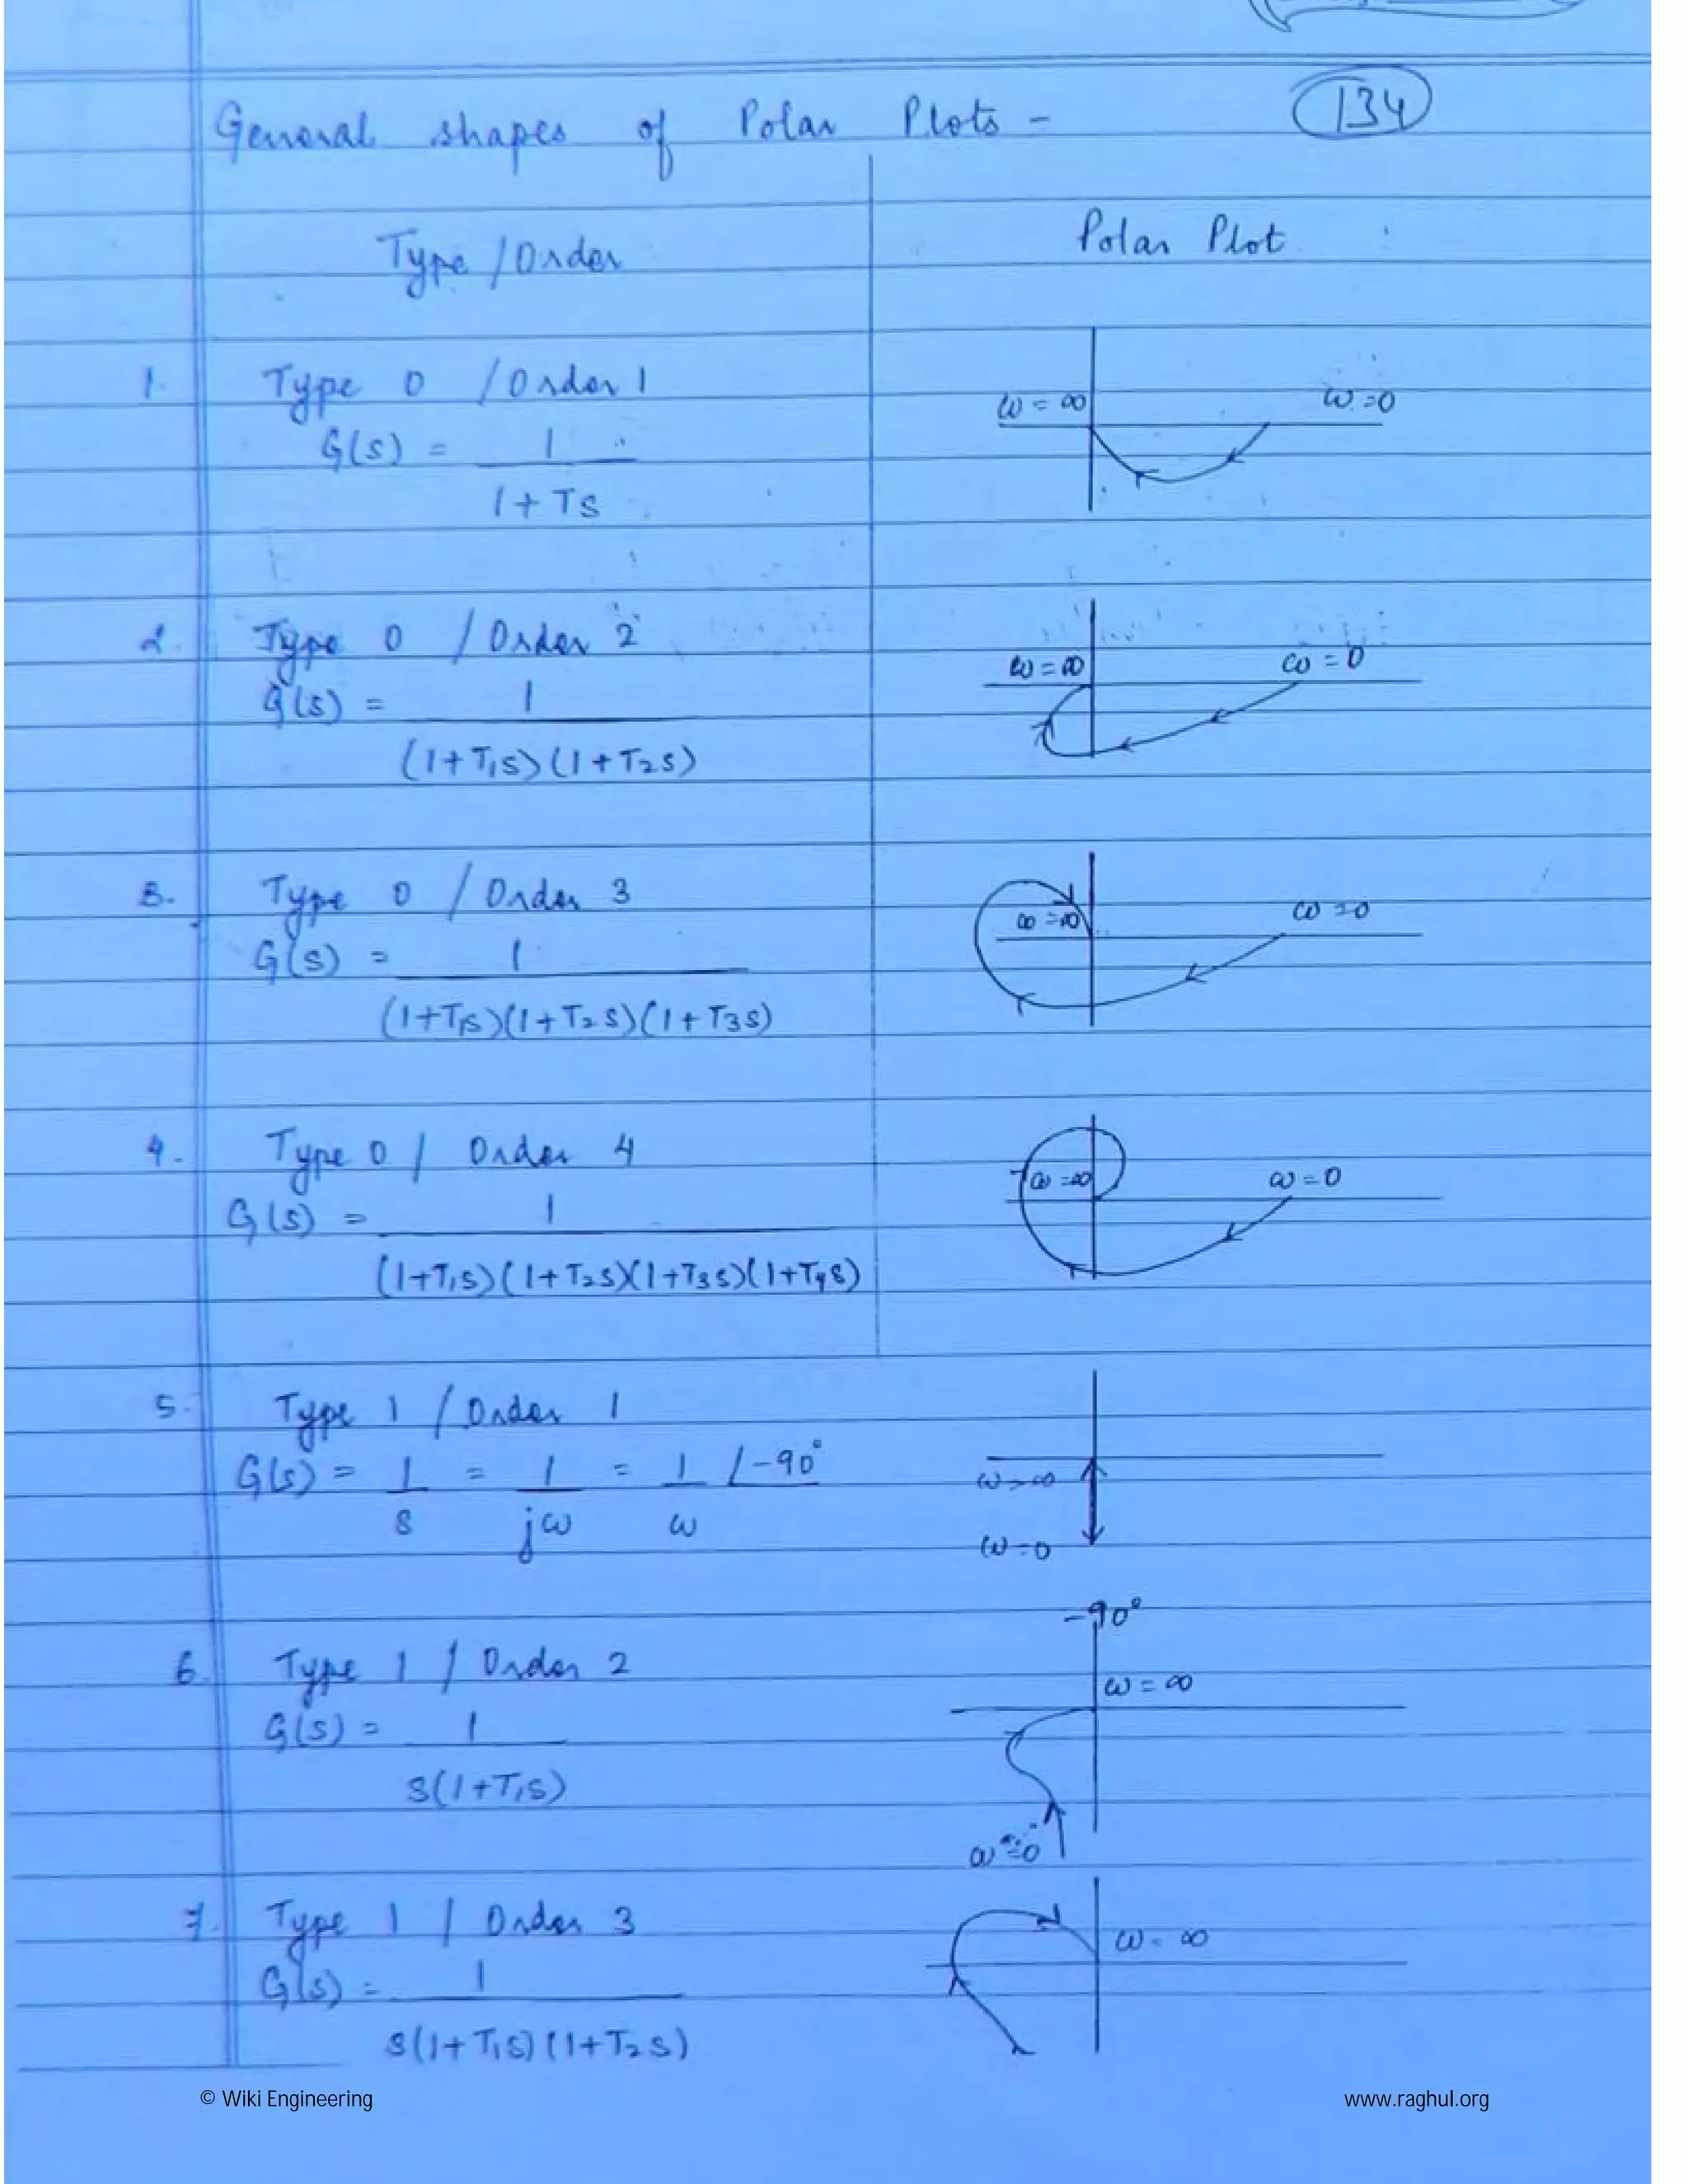 General shapes of Polar Plots - 134
Type / Order Polar Plot
1. Type 0 / Order 1
ω = ∞ ω = 0
G(s) = 1
1 + Ts
2. Type 0 / Order 2
ω = ∞ ω = 0
G(s) = 1
(1+T₁s)(1+T₂s)
3. Type 0 / Order 3
ω = ∞ ω = 0
G(s) = 1
(1+T₁s)(1+T₂s)(1+T₃s)
4. Type 0 / Order 4
ω = ∞ ω = 0
G(s) = 1
(1+T₁s)(1+T₂s)(1+T₃s)(1+T₄s)
5. Type 1 / Order 1
G(s) = 1 = 1 = 1 ∠-90°
s jω ω
ω = ∞
ω = 0
-90°
6. Type 1 / Order 2
ω = ∞
G(s) = 1
s(1+T₁s)
ω = 0
7. Type 1 / Order 3
ω = ∞
G(s) = 1
s(1+T₁s)(1+T₂s)
© Wiki Engineering www.raghul.org